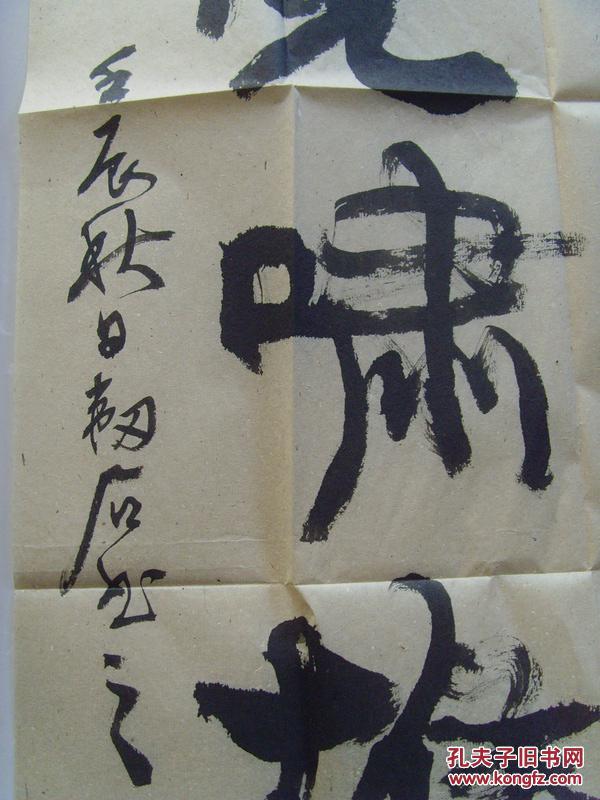 嘯
壬辰秋日韌石书之
孔夫子旧书网
www.kongfz.com